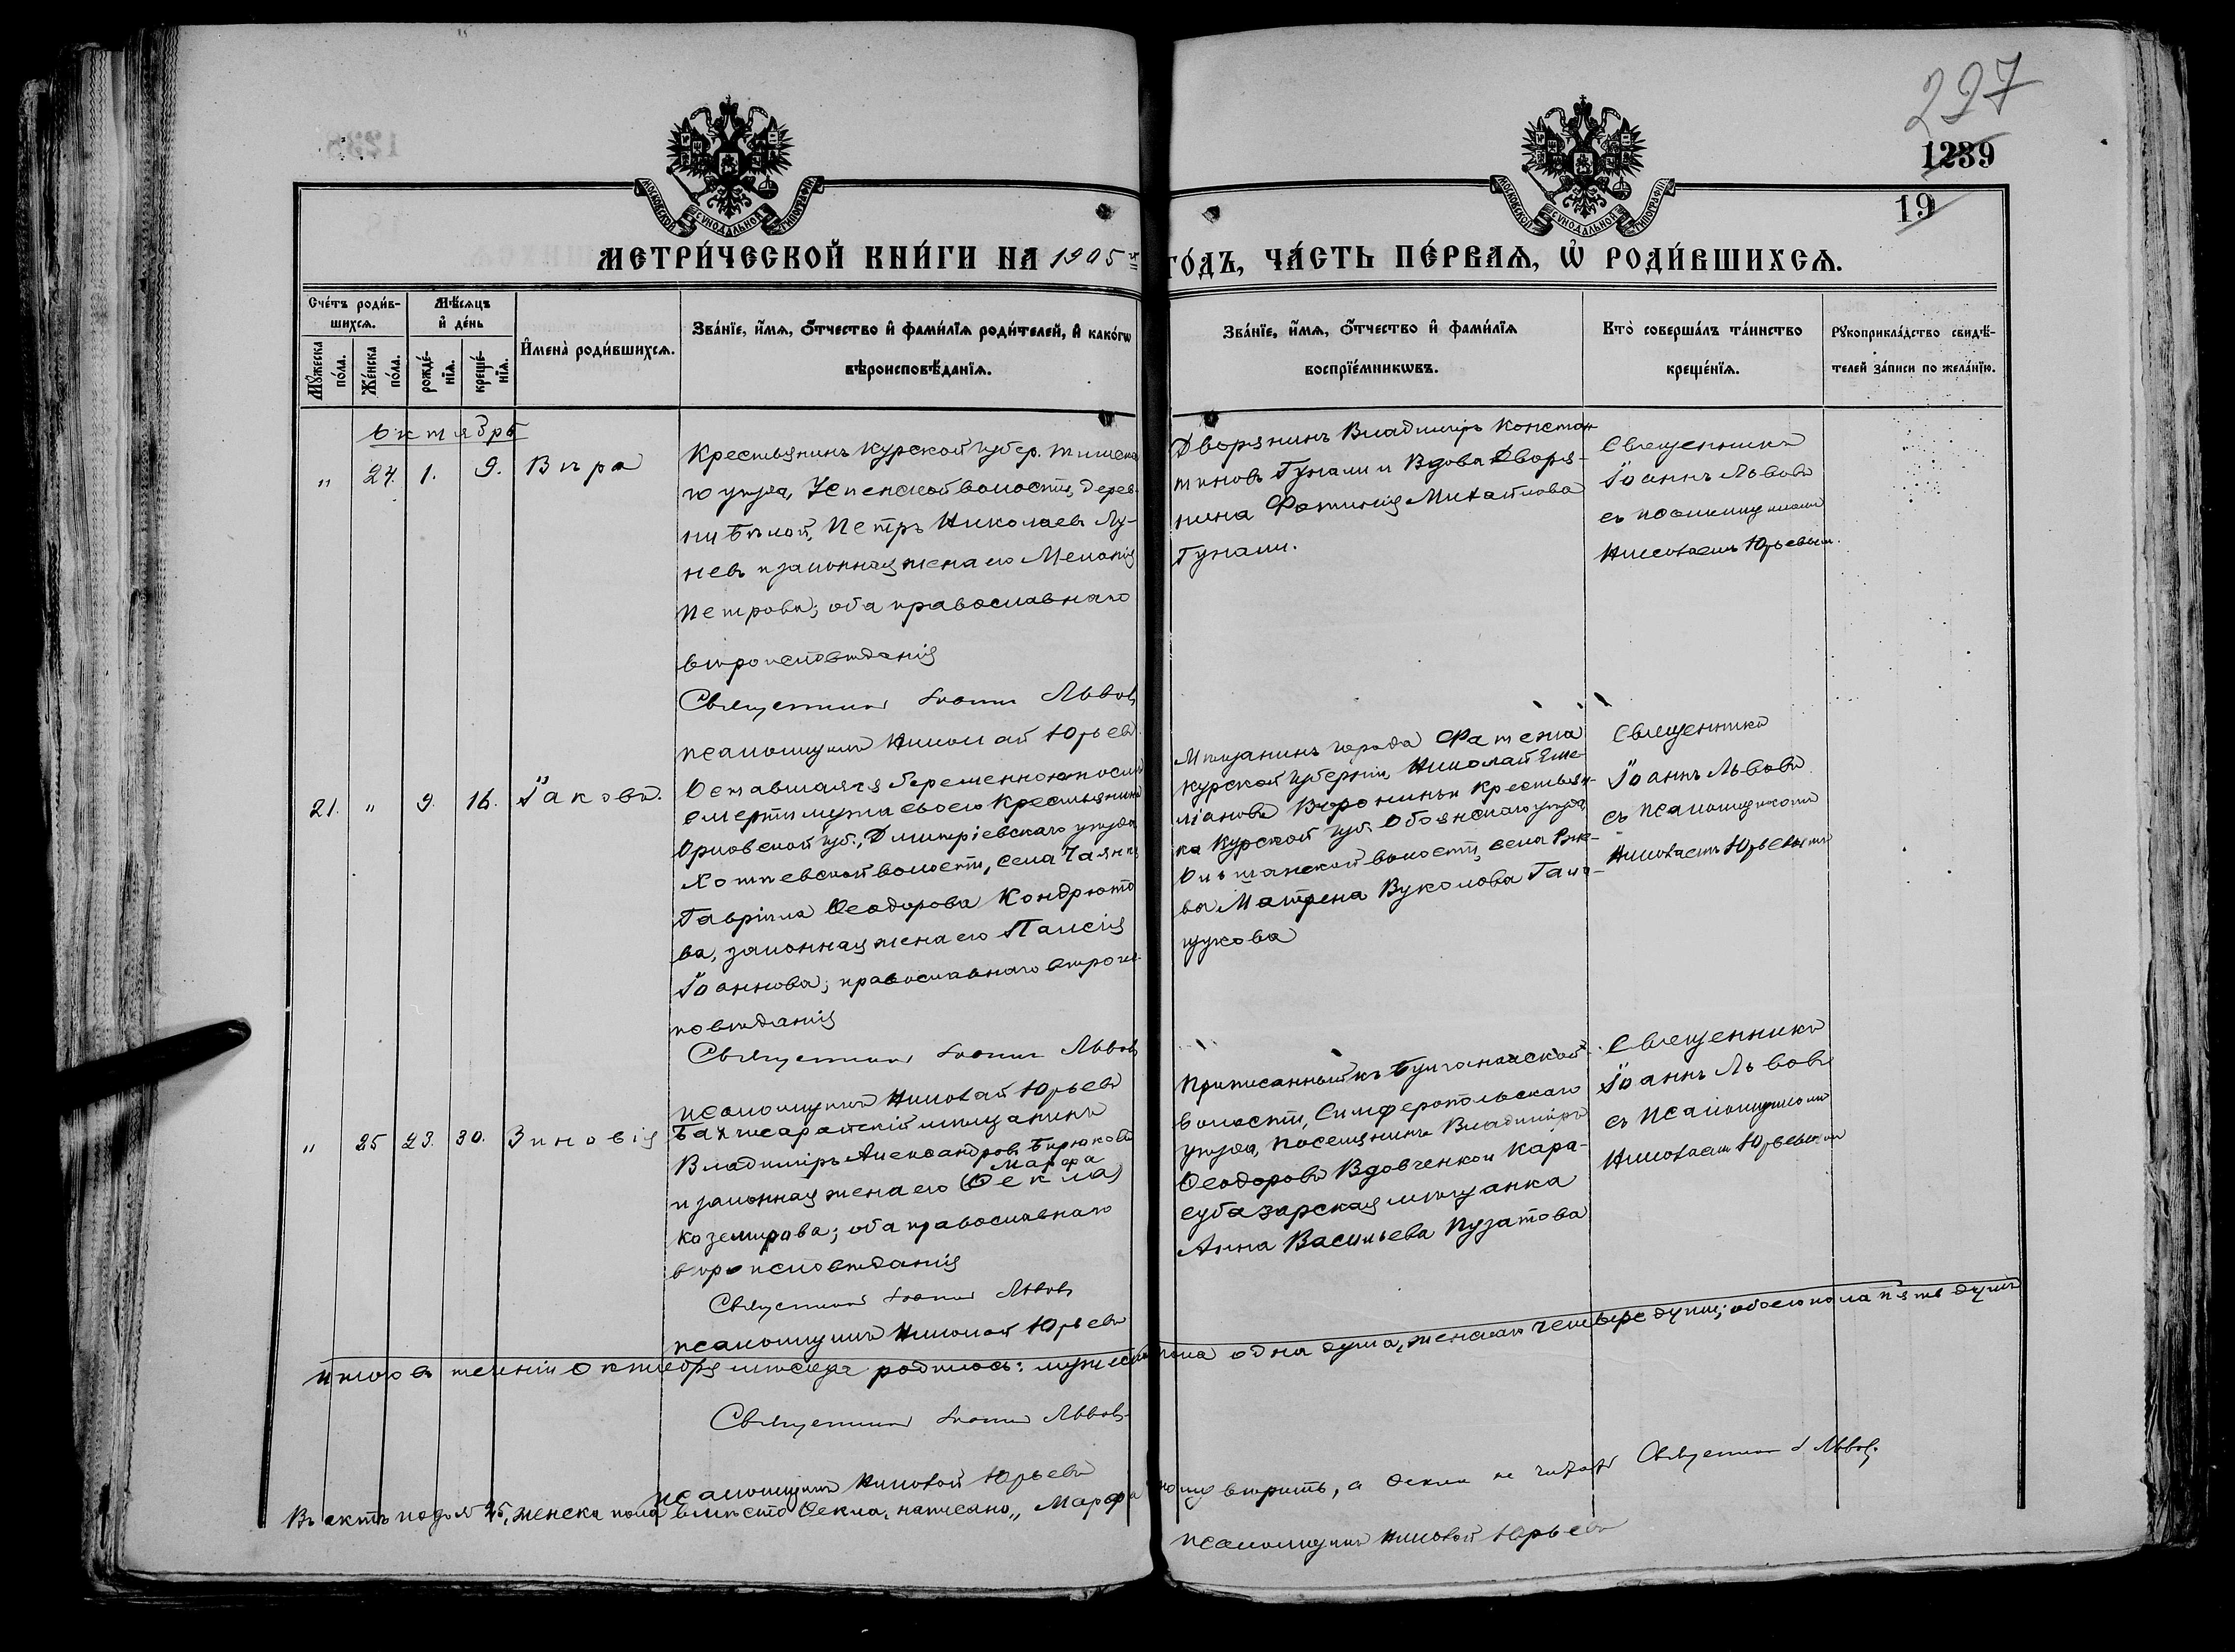 297
1239
19
МОСКОВСКОЙ СѴНОДАЛЬНОЙ ТИПОГРАФІИ
МОСКОВСКОЙ СѴНОДАЛЬНОЙ ТИПОГРАФІИ
МЕТРИ́ЧЕСКОЙ КНИ́ГИ НА 1905 й ГО́ДЪ, ЧА́СТЬ ПЕ́РВАЯ, Ѡ҆ РОДИ́ВШИХСЯ.
Сче́тъ роди́в-
шихся.
Мѹ́жеска по́ла.
Же́нска по́ла.
Мѣ́сяцъ
и҆ де́нь
рожде́-
нїя.
креще́-
нїя.
И҆мена̀ роди́вшихся.
Зва́нїе, и҆́мя, ѻ҆́тчество и҆ фами́лїя роди́телей, и҆ како́гѡ
вѣроисповѣ́данїя.
Зва́нїе, и҆́мя, ѻ҆́тчество и҆ фами́лїя
воспрїе́мникѡвъ.
Кто̀ соверша́лъ та́инство
креще́нїя.
Рѹкоприкла́дство свидѣ́-
телей за́писи по жела́нїю.
Октябрь
" 24. 1. 9. Вѣра
Крестьянинъ Курской губер. Тимска
го уѣзда, Успенской волости, дерев
ни Бѣлой, Петръ Николаевъ Лу-
невъ и законная жена его Меланія
Петрова; оба православнаго
вѣроисповѣданія
Священникъ Іоаннъ Львовъ
псаломщикъ Николай Юрьевъ
Дворянинъ Владиміръ Констан
тиновъ Гунали и Вдова Дворя-
нина Фотинія Михайлова
Гунали.
Священникъ
Іоаннъ Львовъ
съ псаломщикомъ
Николаемъ Юрьевымъ.
21. " 9. 16. Іаковъ.
Оставшаяся беременною послѣ
смерти мужа своего Крестьянина
Орловской губ., Дмитріевскаго уѣзда
волости, села
Гавріила Ѳеодорова Кондрюто
ва, законная жена его
Іоаннова; православнаго вѣроис
повѣданія
Священникъ Іоаннъ Львовъ
псаломщикъ Николай Юрьевъ
Мѣщанинъ города Фатежа
Курской губерніи Николай Еме-
ліановъ Воронинъ и Крестьян-
ка Курской губ. Обоянскаго уѣзда
Ольшанской волости, села Рже-
ва Матрена Вуколова Гало-
щукова
Священникъ
Іоаннъ Львовъ
съ псаломщикомъ
Николаемъ Юрьевымъ
" 25 23. 30. Зиновія
Бахчисарайскій мѣщанинъ
Владиміръ Александровъ Бирюковъ
Марфа
и законная жена его (Ѳекла)
Каземирова; оба православнаго
вѣроисповѣданія
Священникъ Іоаннъ Львовъ
псаломщикъ Николай Юрьевъ
Приписанный къ Булганакской
волости, Симферопольскаго
уѣзда, поселянинъ Владиміръ
Ѳеодоровъ Вдовченко и Кара-
субазарская мѣщанка
Анна Васильева Пузатова
Священникъ
Іоаннъ Львовъ
съ псаломщикомъ
Николаемъ Юрьевымъ
Итого въ теченіи Октября мѣсяца родилось: мужеска пола одна душа, женска четыре души; обоего пола пять душъ
Священникъ Іоаннъ Львовъ
псаломщикъ Николай Юрьевъ
Въ актѣ подъ № 25, женска пола вмѣсто Ѳекла, написано „Марфа тому вѣрить, а Ѳекла не читать Священникъ І Львовъ
псаломщикъ Николай Юрьевъ